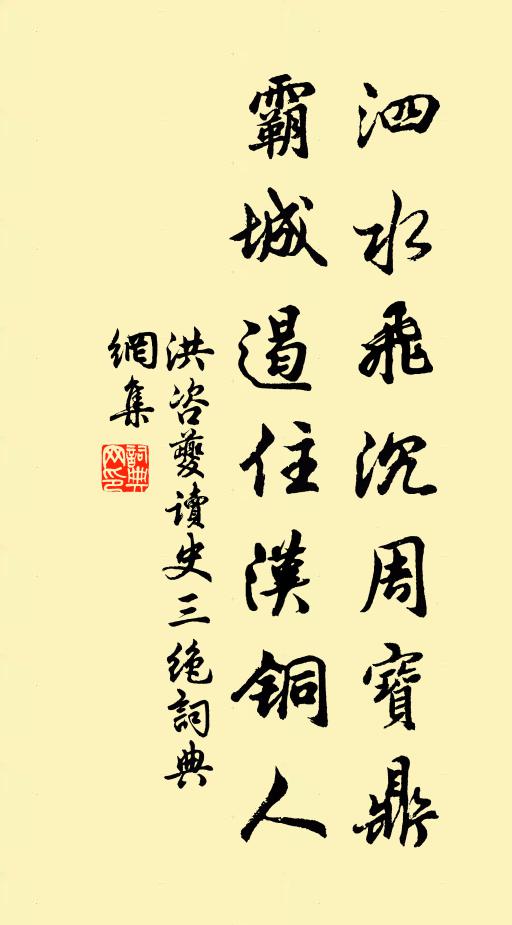 泗水飛沉周寶鼎
霸城遏住漢銅人
洪咨夔讀史三絶詞典
網集
詞典網印